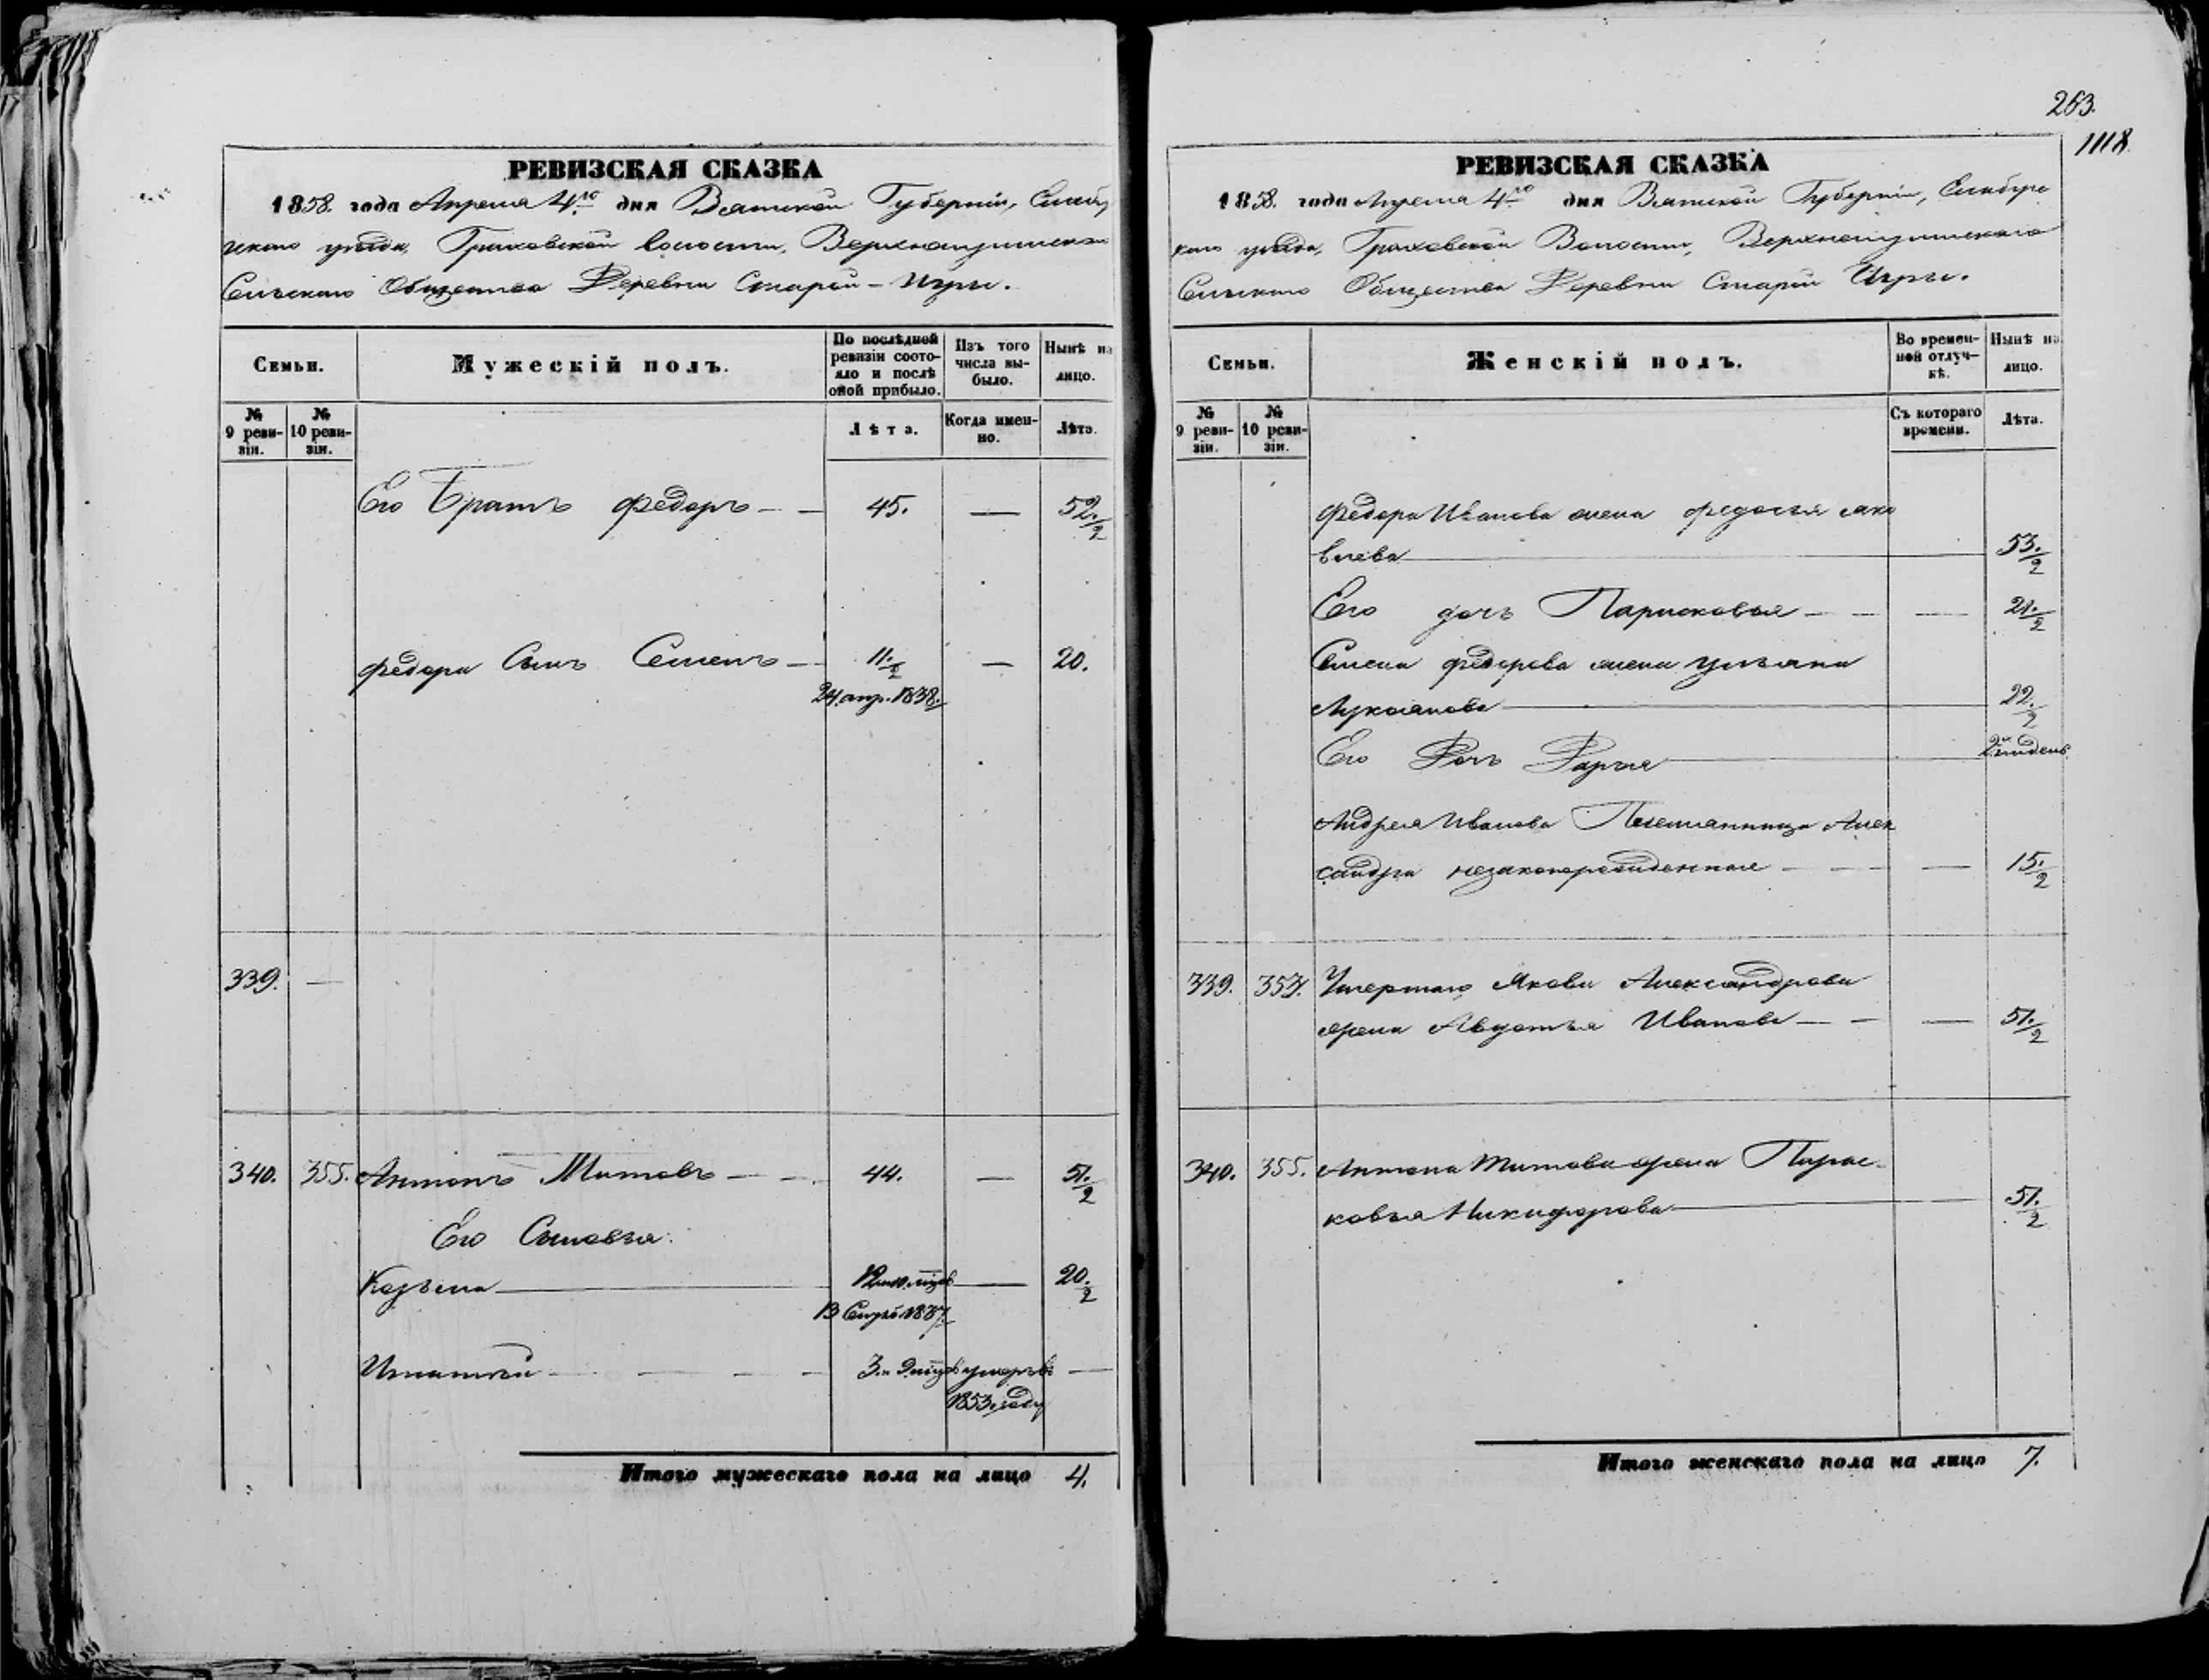 РЕВИЗСКАЯ СКАЗКА
1858. года Апреля 4го дня Вятской Губерніи, Елабу
жскаго уѣзда, Граховской волости,
Сельскаго Общества Деревни Старой-Игры.
Семьи.
Мужескій полъ.
По послѣдней ревизіи состояло и послѣ оной прибыло.
Изъ того числа выбыло.
Нынѣ на лицо.
№ 9 ревизіи.
№ 10 ревизіи.
Лѣта.
Когда именно.
Лѣта.
Его Братъ Федоръ — — 45. — 52.1/2
Федора Сынъ Семенъ — 11.1/2 — 20.
24. апр. 1838.
339. —
340. 355. Антонъ Титовъ — — 44. — 51.1/2
Его Сыновья:
Козьма — — 20.1/2
Игнатій — — — 3. и 9 мѣс. умеръ въ —
1853. году
Итого мужескаго пола на лицо 4.
253.
1118.
РЕВИЗСКАЯ СКАЗКА
1858. года Апреля 4го дня Вятской Губерніи, Елабужс
каго уѣзда, Граховской Волости,
Сельскаго Общества Деревни Старой Игры.
Семьи.
Женскій полъ.
Во временной отлучкѣ.
Нынѣ на лицо.
№ 9 ревизіи.
№ 10 ревизіи.
Съ котораго времени.
Лѣта.
Федора Иванова жена Федосья Яко
влева — 53.1/2
Его дочь Парасковья — — — 21.1/2
Семена Федорова жена Ульяна
Лукоянова — 22.1/2
Его Дочь Дарья — 2хъ недель
Андрея Иванова Племянница Алек
сандра незаконорожденная — — — 15.1/2
339. 357. Умершаго Якова Александрова
жена Авдотья Иванова — — — 51.1/2
340. 355. Антона Титова жена Парас-
ковья Никифорова — 51.1/2
Итого женскаго пола на лицо 7.